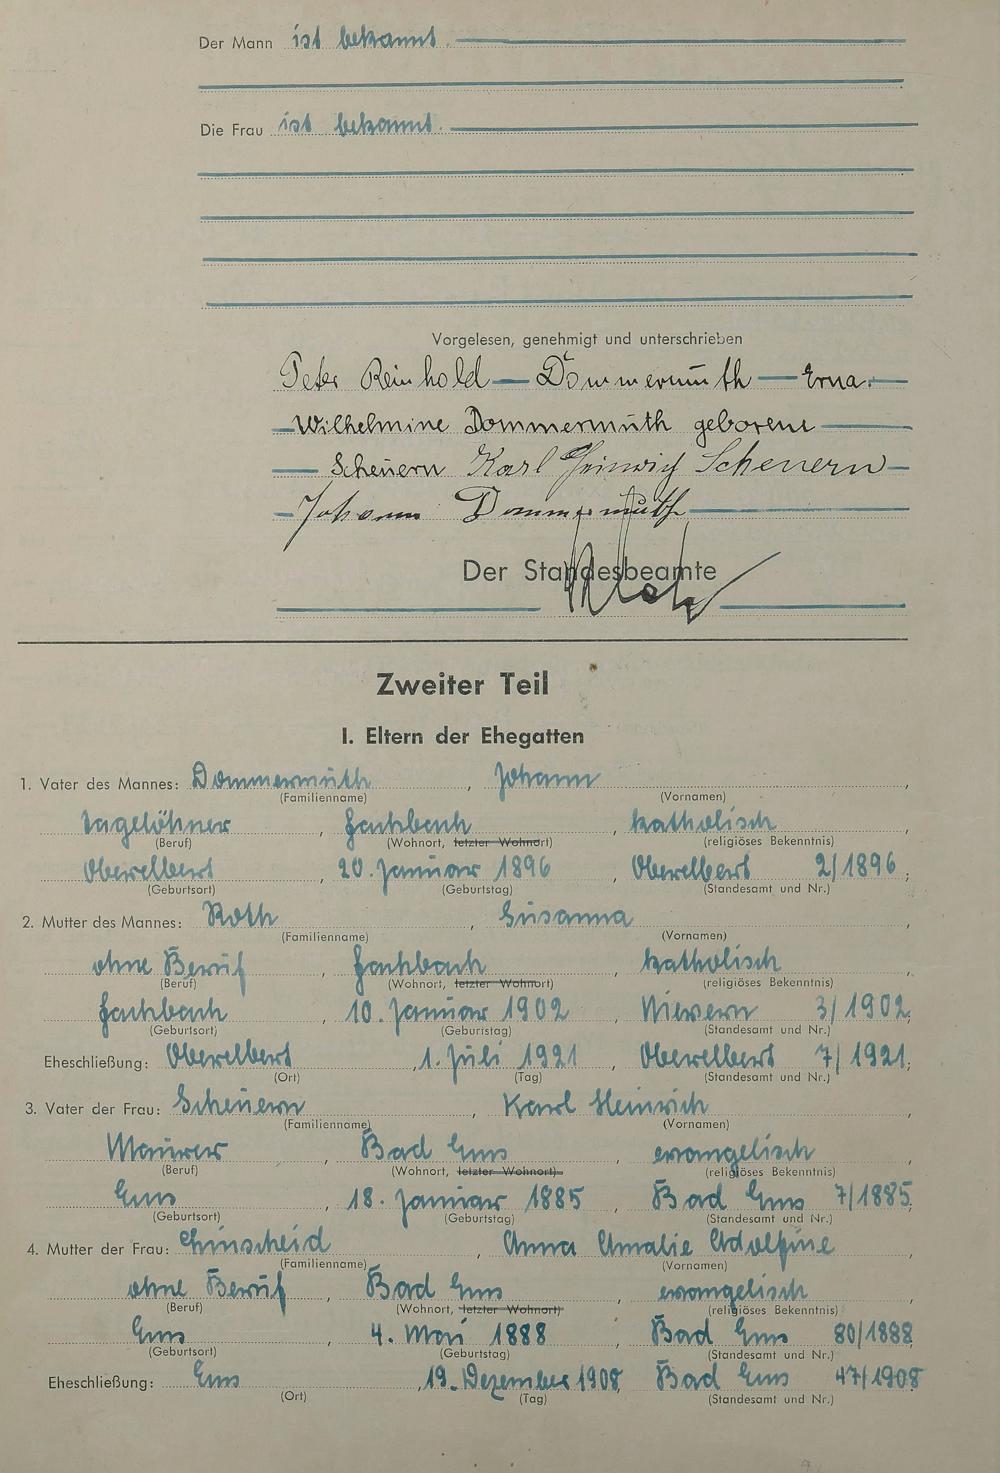 Der Mann ist bekannt.
Die Frau ist bekannt.
Vorgelesen, genehmigt und unterschrieben
Peter Reinhold Dommermuth Erna
Wilhelmine Dommermuth geborene
Scheuern Karl Heinrich Scheuern
Johann Dommermuth
Der Standesbeamte
Zweiter Teil
I. Eltern der Ehegatten
1. Vater des Mannes: Dommermuth, Johann,
(Familienname) (Vornamen)
Tagelöhner, Fachbach, katholisch,
(Beruf) (Wohnort, letzter Wohnort) (religiöses Bekenntnis)
Oberelbert, 20. Januar 1896, Oberelbert 2/1896;
(Geburtsort) (Geburtstag) (Standesamt und Nr.)
2. Mutter des Mannes: Roth, Susanna,
(Familienname) (Vornamen)
ohne Beruf, Fachbach, katholisch,
(Beruf) (Wohnort, letzter Wohnort) (religiöses Bekenntnis)
Fachbach, 10. Januar 1902, Nievern 3/1902;
(Geburtsort) (Geburtstag) (Standesamt und Nr.)
Eheschließung: Oberelbert, 1. Juli 1921, Oberelbert 7/1921;
(Ort) (Tag) (Standesamt und Nr.)
3. Vater der Frau: Scheuern, Karl Heinrich,
(Familienname) (Vornamen)
Maurer, Bad Ems, evangelisch,
(Beruf) (Wohnort, letzter Wohnort) (religiöses Bekenntnis)
Ems, 18. Januar 1885, Bad Ems 7/1885;
(Geburtsort) (Geburtstag) (Standesamt und Nr.)
4. Mutter der Frau: , Anna Amalie Adolfine,
(Familienname) (Vornamen)
ohne Beruf, Bad Ems, evangelisch,
(Beruf) (Wohnort, letzter Wohnort) (religiöses Bekenntnis)
Ems, 4. Mai 1888, Bad Ems 80/1888;
(Geburtsort) (Geburtstag) (Standesamt und Nr.)
Eheschließung: Ems, 19. Dezember 1908, Bad Ems 47/1908
(Ort) (Tag) (Standesamt und Nr.)